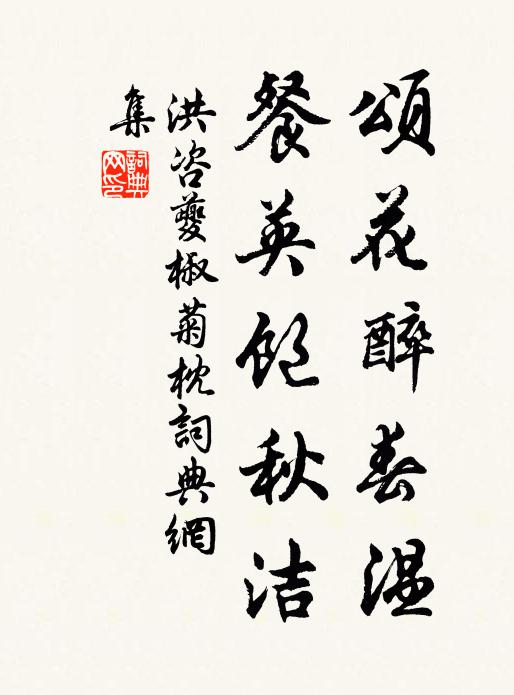 頌花醉春温
餐英飽秋洁
洪咨夔椒菊枕詞典網
集
詞典網印